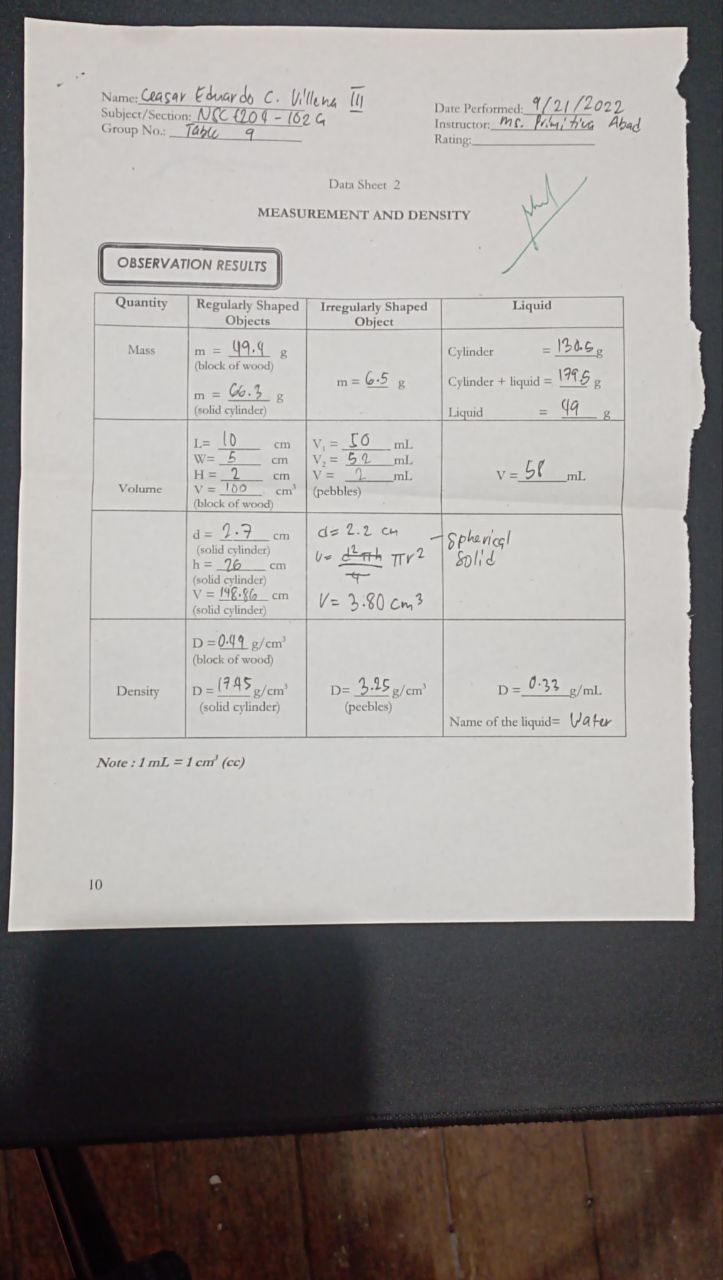 Name: Ceasar Eduardo C. Villena III
Subject/Section: NSC 1204 - 102 G
Group No.: Table 9
Date Performed: 9/21/2022
Instructor: Ms. Primitiva Abad
Rating:
Data Sheet 2
MEASUREMENT AND DENSITY
OBSERVATION RESULTS
Quantity Regularly Shaped Objects Irregularly Shaped Object Liquid
Mass
m = 49.4 g
(block of wood)
m = 66.3 g
(solid cylinder)
m = 6.5 g
Cylinder = 130.5 g
Cylinder + liquid = 179.5 g
Liquid = 49 g
Volume
L= 10 cm
W= 5 cm
H = 2 cm
V = 100 cm³
(block of wood)
V₁ = 50 mL
V₂ = 52 mL
V = 2 mL
(pebbles)
V = 58 mL
d = 2.7 cm
(solid cylinder)
h = 26 cm
(solid cylinder)
V = 148.86 cm
(solid cylinder)
d= 2.2 cm
V= πr²
V= 3.80 cm³
- Spherical
Solid
Density
D = 0.49 g/cm³
(block of wood)
D = 17.45 g/cm³
(solid cylinder)
D= 3.25 g/cm³
(peebles)
D = 0.33 g/mL
Name of the liquid= Water
Note : 1 mL = 1 cm³ (cc)
10